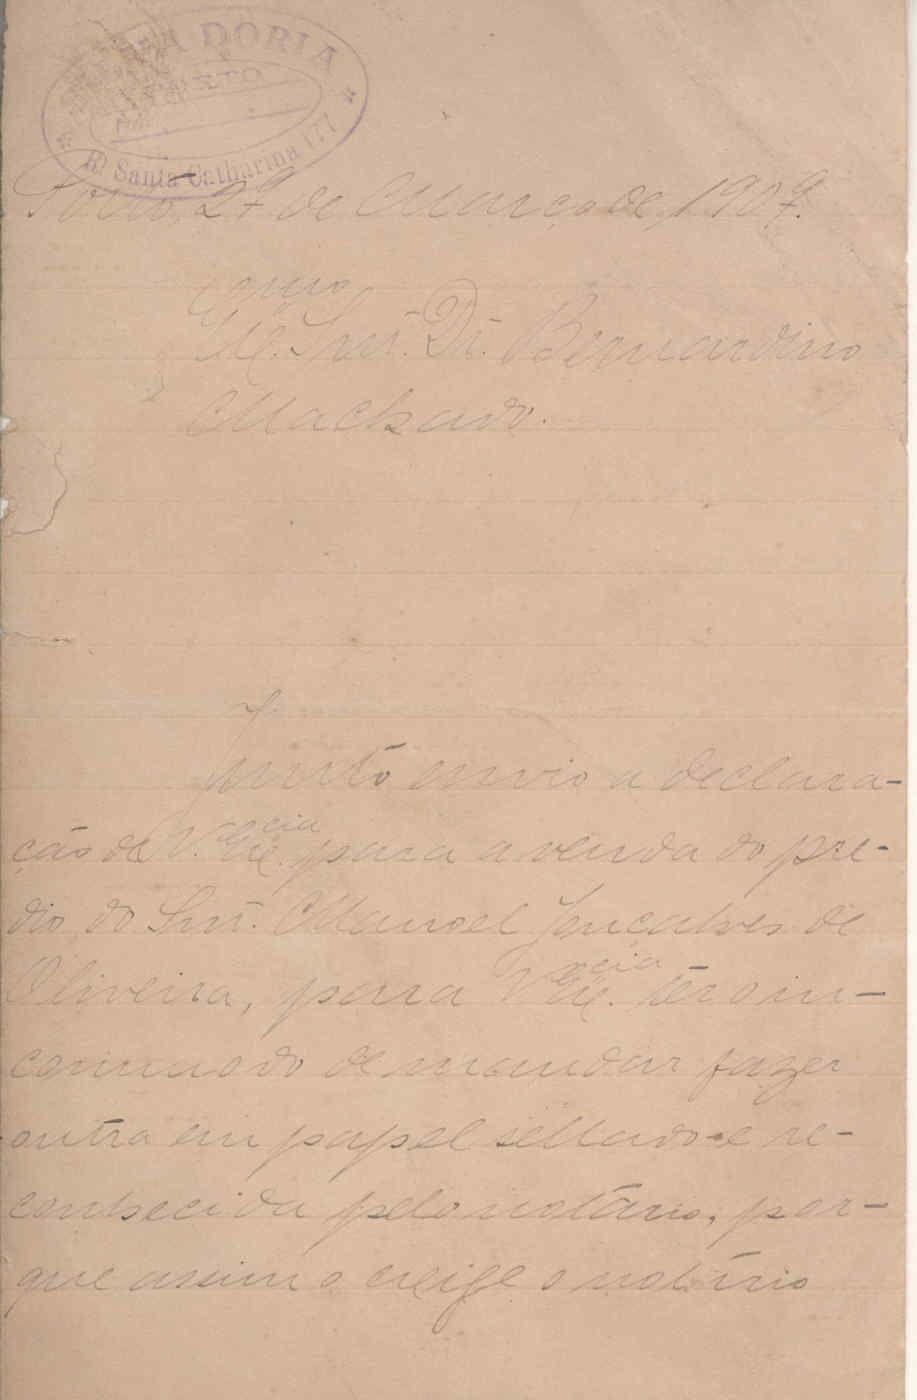 DORIA
PORTO
R. Santa Catharina 177
Porto, 27 de Março de 1907.
Exmo
Sñr. Dr. Bernardino
Machado.
Junto envio a declara-
ção de V. Excia para a venda do pre-
dio do Snr. Manoel Gonçalves de
Oliveira, para V. Excia ter o in-
commodo de mandar fazer
outra em papel sellado e re-
conhecida pelo notário, por-
que assim o exige o notário